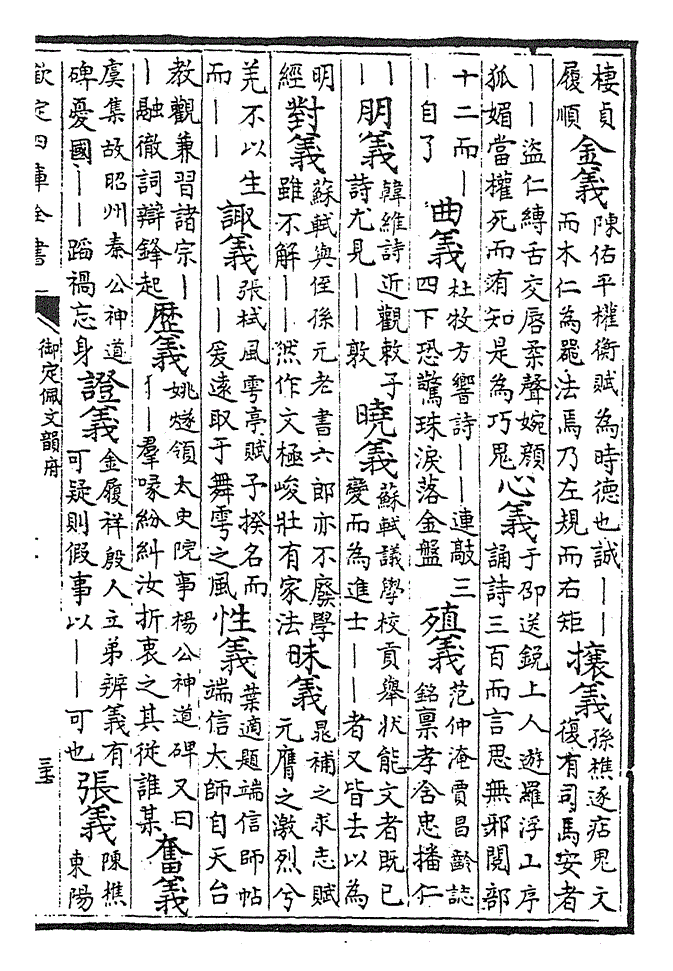 棲貞履順金義陳佑平權衡賦為時德也誠一一而木仁為罷法焉乃左規而右矩攘義孫樵逐痁鬼文復有司馬安者
一一盜仁縛舌交唇柔聲婉顏狐媚當權死而洧知是為巧鬼心義于邵送銳上人遊羅浮山序誦詩三百而言思無邪閱部
十二而一一自了曲義杜牧方響詩一一連敲三四下恐驚珠淚落金盤殖義范仲淹賈昌齡誌銘稟孝含忠播仁
一一朋義韓維詩近觀敕子詩尤見一一敦曉義蘇軾議學校貢舉状能文者既已變而為進士一一者又皆去以為
明經對義蘇軾與侄孫元老書六郎亦不廢學雖不解一一然作文極峻壯有家法昧義晁補之求志賦元膺之激烈兮
羌不以生而一一諏義張栻風雩亭賦予揆名而一一爰遠取于舞雩之風性義葉適題端信師帖端信大師自天台
教觀兼習諸宗一一融徹詞辯鋒起歴義姚燧領太史院事楊公神道碑又曰一一羣喙紛糾汝折衷之其從誰某奮義
虞集故昭州秦公神道碑憂國一一蹈禍忘身證義金履祥殷人立弟辨義有可疑則假事以一一可也張義陳樵東陽
欽定四庫全書
御定佩文韻府